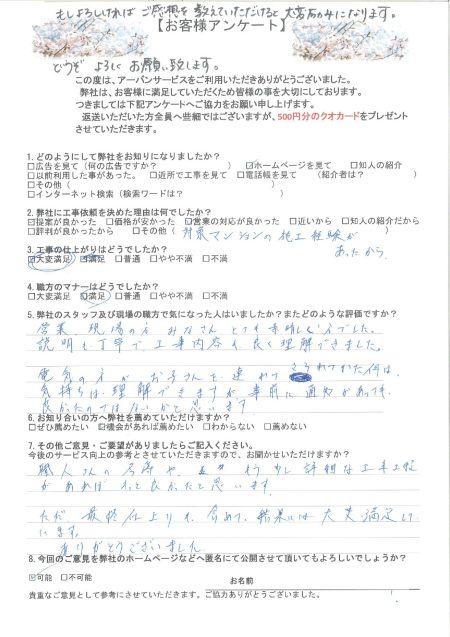 もしよろしければご感想を教えていただけると大変励みになります。
【お客様アンケート】
どうぞ よろしく お願い致します。
この度は、アーバンサービスをご利用いただきありがとうございました。
弊社は、お客様に満足していただくため皆様の事を大切にしております。
つきましては下記アンケートへご協力をお願い申し上げます。
返送いただいた方全員へ些細ではございますが、500円分のクオカードをプレゼント
させていただきます。
1.どのようにして弊社をお知りになりましたか?
□広告を見て(何の広告ですか? ) ☑ホームページを見て □知人の紹介
□以前利用した事があった。 □近所で工事を見て □電話帳を見て (紹介者は? )
□その他( )
□インターネット検索(検索ワードは? )
2.弊社に工事依頼を決めた理由は何でしたか?
□提案が良かった □価格が安かった ☑営業の対応が良かった □近いから □知人の紹介だから
□評判が良かったから □その他( 対象マンションの施工経験が
あったから。
3.工事の仕上がりはどうでしたか?
☑大変満足 □満足 □普通 □やや不満 □不満
4.職方のマナーはどうでしたか?
□大変満足 ☑満足 □普通 □やや不満 □不満
5.弊社のスタッフ及び現場の職方で気になった人はいましたか?またどのような評価ですか?
営業、現場の方 みなさん とても素晴しい方でした。
説明も丁寧で、工事内容も良く理解できました。
電気の方が お子さんを連れて されてた件は、
気持ちは理解できますが 事前に通知があっても
良かったのではないかと思います。
6.お知り合いの方へ弊社を薦めていただけますか?
□ぜひ薦めたい □機会があれば薦めたい □わからない □薦めない
7.その他ご意見・ご要望がありましたらご記入ください。
今後のサービス向上の参考とさせていただきますので、お聞かせいただけますか?
職人さんの名前や、 もう少し詳細な工事工程
があればもっと良かったと思います。
ただ 最終仕上りも含めて、結果には大変満足して
います。
ありがとうございました。
8.今回のご意見を弊社のホームページなどへ匿名にて公開させて頂いてもよろしいでしょうか?
☑可能 □不可能
お名前
貴重なご意見として参考にさせていただきます。ご協力ありがとうございました。